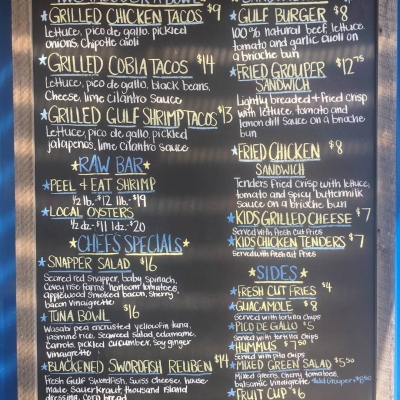 ★GRILLED CHICKEN TACOS $9
Lettuce, pico de gallo, pickled
onions, Chipotle aioli
★GRILLED COBIA TACOS $14
Lettuce, pico de gallo, black beans,
Cheese, lime cilantro sauce
★GRILLED GULF SHRIMP TACOS $13
Lettuce, pico de gallo, pickled
jalapenos, lime cilantro sauce
★RAW BAR★
★PEEL + EAT SHRIMP
1/2 lb. $12 1lb. $19
★LOCAL OYSTERS
1/2 dz. $11 1dz. $20
★CHEFS SPECIALS★
★SNAPPER SALAD $16
Seared red Snapper, baby Spinach,
Covey rise Farms heirloom tomatoes,
applewood Smoked bacon, Sherry
bacon Vinaigrette
★TUNA BOWL $16
Wasabi pea encrusted yellowfin tuna,
jasmine rice, Seaweed salad, edamame,
Carrots, pickled cucumber, Soy ginger
Vinaigrette
★BLACKENED SWORDFISH REUBEN $14
Fresh Gulf Swordfish, Swiss Cheese, house
made Sauerkraut, thousand island
dressing, Corn bread
★GULF BURGER $8
100% natural beef, lettuce,
tomato and garlic aioli on
a brioche bun
★FRIED GROUPER $12.75
SANDWICH
Lightly breaded + fried crisp
with lettuce, tomato and
lemon dill Sauce on a brioche
bun
★FRIED CHICKEN $8
SANDWICH
Tenders Fried Crisp with lettuce,
tomato and spicy buttermilk
Sauce on a brioche bun
★KIDS GRILLED CHEESE $7
Served with Fresh Cut Fries
★KIDS CHICKEN TENDERS $7
Served with Fresh Cut Fries
★SIDES★
★FRESH CUT FRIES $4
★GUACAMOLE $8
Served with tortilla Chips
★PICO DE GALLO $5
Served with tortilla Chips
★HUMMUS $7.50
Served with pita chips
★MIXED GREEN SALAD $5.50
Mixed greens, Cherry tomatoes,
balsamic Vinaigrette *Add Grouper +$8.50
★FRUIT CUP $6